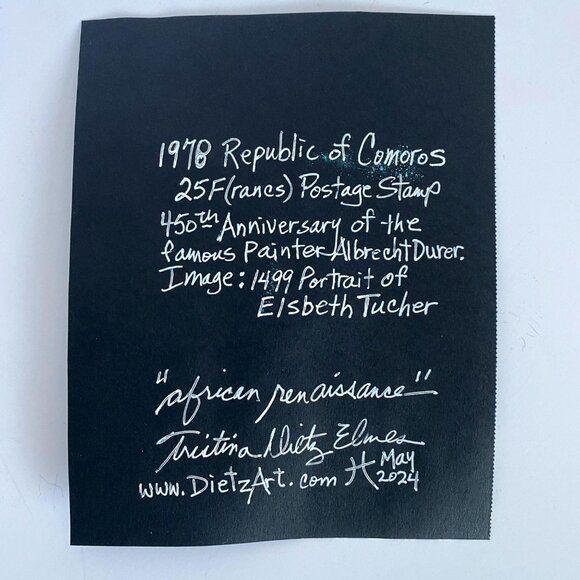 1978 Republic of Comoros
25F(rancs) Postage Stamp
450th Anniversary of the
famous Painter Albrecht Durer.
Image: 1499 Portrait of
Elsbeth Tucher
"african renaissance"
Tristina Dietz Elmes
www.DietzArt.com May
2024